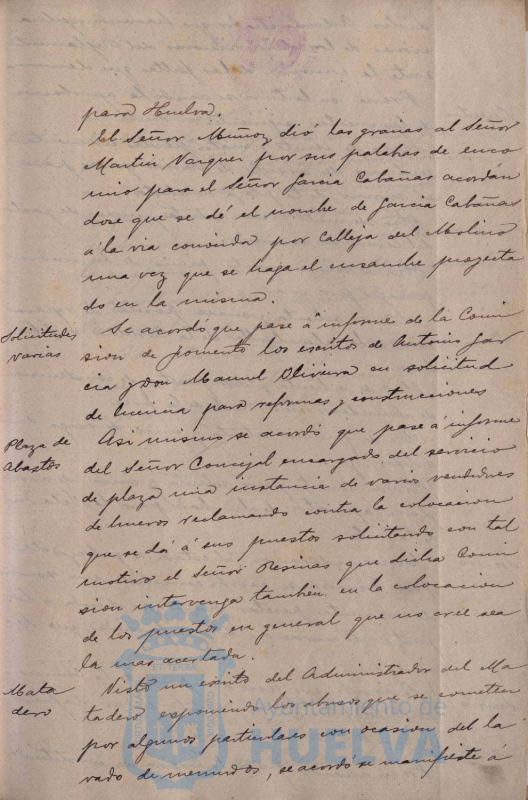 para Huelva.
El Señor Muñoz dió las gracias al Señor
Martin Vazquez por sus palabras de enco
mio para el Señor Garcia Cabañas acordán
dose que se dé el nombre de Garcia Cabañas
á la via conocida por Calleja del Molino
una vez que se haga el ensanche proyecta
do en la misma.
Solicitudes
varias
Se acordó que pase á informe de la Comi
sion de fomento los escritos de Antonio Gar
cia y Don Manuel Oliveira en solicitud
de licencia para reformas y construcciones
Plaza de
Abastos
Asi mismo se acordó que pase á informe
del Señor Concejal encargado del servicio
de plaza una instancia de varios vendedores
de huevos reclamando contra la colocacion
que se dá á sus puestos solicitando con tal
motivo el Señor Resinas que dicha Comi
sion intervenga tambien en la colocacion
de los puestos en general que no cree sea
la mas acertada.
Mata
dero
Visto un escrito del Administrador del Ma
tadero exponiendo los abusos que se cometen
por algunos particulares con ocasion del la
vado de menudos, se acordó se manifieste á
Ayuntamiento de
HUELVA